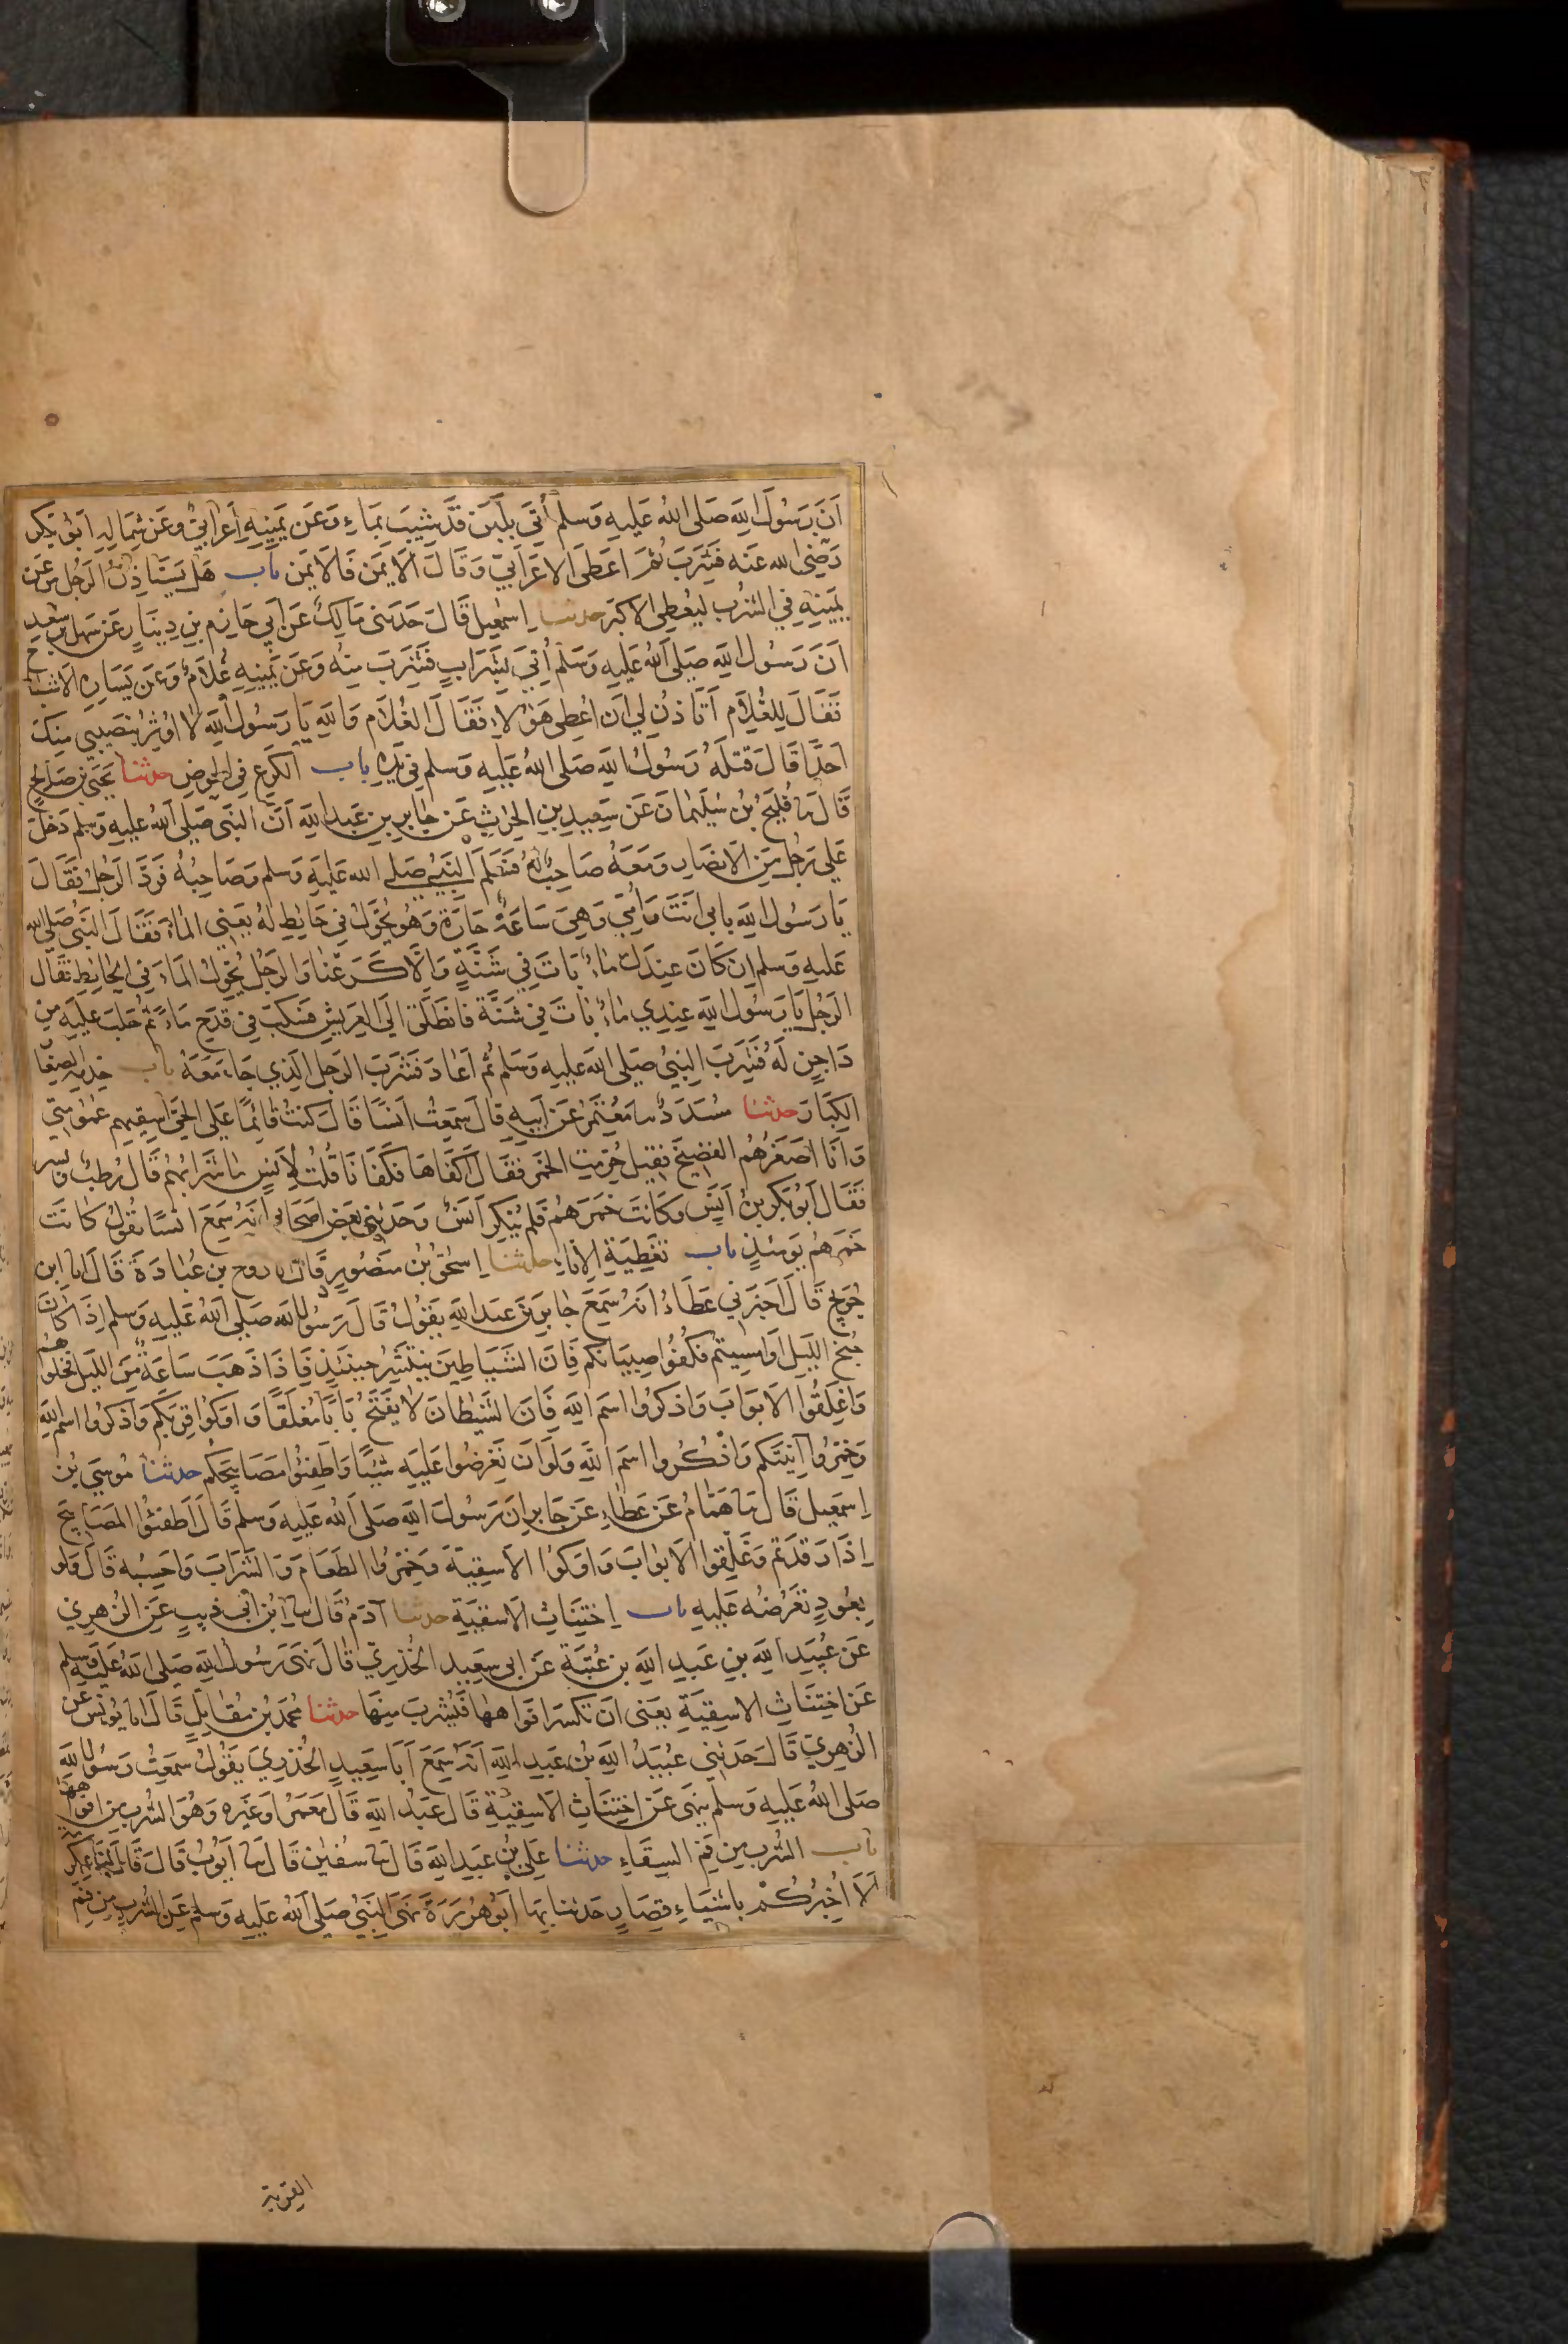 اَنَّ رَسُولَ اللهِ صَلى اللهُ عَليهِ وَسَلم أُتِىَ بِلَبَنٍ قَد شِيبَ بِمَاءٍ وَعَن يَمِينِهِ أَعرَابِىٌّ وَعَن شِمَالِهِ اَبُو بَكرٍ
رَضِىَ الله عَنه فَشَرِبَ ثُمَّ اَعطَى الاَعرَابِىَّ وَقَالَ اَلاَيمَن فَالاَيمَن باب هَل يَستَاذِنُ الرَجُلُ مَن عَن
يَمِينِهِ فِى الشُربِ لِيُعطِىَ الاكبَرَ حدثنا اِسمعِيل قَالَ حَدَثَنى مَالِكٌ عَن اَبِي حَازِم بنِ دِينَارٍ عَن سَهلِ بنِ سَعدٍ
اَنَّ رَسُولَ اللهِ صَلى اللهُ عَليهِ وَسَلم أُتِىَ بِشَرَابٍ فَشَرِبَ مِنهُ وَعَن يَمِينِهِ غُلاَمٌ وَعَن يَسَارِهِ الاَشيَاخ
فَقَالَ لِلغُلاَمِ اَتَاذَنُ لِى اَن اُعطِىَ هَؤلاءِ فَقَالَ الغُلاَم وَاللهِ يَا رَسُولَ اللهِ لاَ اُوثِرُ بِنَصِيبِي مِنكَ
اَحَدًا قَالَ فَتَلَّهُ رَسُولُ اللهِ صَلى اللهُ عَليهِ وَسَلم فِى يَدِهِ باب الكَرعِ فِى الحَوضِ حدثنا يَحيَى بنُ صَالِحٍ
قَالَ نا فُلَيحُ بنُ سُلَيمَانَ عَن سَعِيدِ بنِ الحرِثِ عَن جَابِرِ بنِ عَبدِ اللهِ اَنَّ النَبِى صَلى اللهُ عَليهِ وَسَلم دَخَلَ
عَلَى رَجُلٍ مِنَ الاَنصَارِ وَمَعَهُ صَاحِبٌ لَهُ فَسَلَّمَ النَبِىُّ صَلى الله عَليهِ وَسَلم وَصَاحِبُهُ فَرَدَّ الرَجُلُ فَقَالَ
يَا رَسُولَ اللهِ بِابِى اَنتَ وَاُمِّى وَهِىَ سَاعَةٌ حَارَةٌ وَهُوَ يُحَوِّلُ فِى حَائِطٍ لَهُ يَعنِى المَاءَ فَقَالَ النَبِىُّ صَلى الله
عَليهِ وَسَلم اِن كَانَ عِندَكَ مَاءٌ بَاتَ فِي شَنَّةٍ وَاِلاَّ كَرَعنَا وَالرَجُلُ يُحَوِّلُ المَاءَ فِى الحَائِطِ فَقَالَ
الرَجُلُ يَا رَسُولَ اللهِ عِندِي مَاءٌ بَاتَ فِى شَنَّةٍ فَانطَلَقَ اِلَى العَرِيشِ فَسَكَبَ فِى قَدَحٍ مَاءً ثُمَّ حَلَبَ عَلَيهِ مِن
دَاجِنٍ لَهُ فَشَرِبَ النَبِىُّ صَلى الله عَليهِ وَسَلم ثُمَّ اَعَادَ فَشَرِبَ الرَجُلُ الَذِي جَاءَ مَعَهُ باب خِدمَةِ الصِغَارِ
الكِبَارَ حدثنا مُسَدَدٌ نا مُعتَمِرٌ عَن اَبِيهِ قَالَ سَمِعتُ اَنَسًا قَالَ كُنتُ قَائِمًا عَلَى الحَىِّ اَسقِيهِم عُمُومَتِى
وَاَنَا اَصغَرُهُم الفَضِيخَ فَقِيلَ حُرِّمَتِ الخَمرُ فَقَالَ اَكفِاهَا فَكَفَانَا قُلتُ لِاَنَسٍ مَا شَرَابُهُم قَالَ رُطَبٌ وَبُسر
فَقَالَ اَبُو بَكرِ بنُ اَنَسٍ وَكَانَت خَمرَهُم فَلَم يُنكِر اَنَسٌ وَحَدَثَنِى بَعضُ اَصحَابِى اَنَهُ سَمِعَ اَنَسًا يَقُولُ كَانَت
خَمرَهُم يَومَئِذٍ باب تَغطِيَةِ الاِنَاءِ حدثنا اِسحَقُ بنُ مَنصُورٍ قَالَ انا رَوح بنِ عُبَادَةَ قَالَ انا ابن
جُرَيجٍ قَالَ اَخبَرَنِى عَطَاءٌ اَنَهُ سَمِعَ جَابِرَ بنَ عَبدِ اللهِ يَقُولُ قَالَ رَسُولُ اللهِ صَلى اللهُ عَليهِ وَسَلم اِذَا كَانَ
جُنحُ اللَيلِ اَو اَمسَيتُم فَكُفُّوا صِبيَانَكُم فَاِنَّ الشَيَاطِينَ يَنتَشِرُ حِينَئِذٍ فَاِذَا ذَهَبَ سَاعَةٌ مِنَ اللَيلِ فَخَلُّوهُم
وَاَغلِقُوا الاَبوَابَ وَاذكُرُوا اسمَ اللهِ فَاِنَّ الشَيطَانَ لاَ يَفتَحُ بَابًا مُغلَقًا وَاَوكُوا قِرَبَكُم وَاذكُرُوا اسمَ اللهِ
وَخَمِّرُوا آنِيَتَكُم وَاذكُرُوا اسمَ اللهِ وَلَو اَن تَعرِضُوا عَلَيهِ شَيئًا وَاَطفِئُوا مَصَابِيحَكُم حدثنا مُوسَى بنُ
اِسمَعِيل قَالَ نا هَمَّامٌ عَن عَطَاءٍ عَن جَابِرٍ اَنَّ رَسُولَ اللهِ صَلى اللهُ عَليهِ وَسَلم قَالَ اَطفِئُوا المَصَابِيحَ
اِذَا رَقَدتُم وَغَلِّقُوا الاَبوَابَ وَاَوكُوا الاَسقِيَةَ وَخَمِّرُوا الطَعَامَ وَالشَرَابَ وَاَحسِبُه قَالَ وَلَو
بِعُودٍ تَعرُضُهُ عَلَيهِ باب اِختِنَاثِ الاَسقِيَةِ حدثنا آدَمُ قَالَ نا ابنُ اَبِى ذِيبٍ عَنِ الزُهرِيّ
عَن عُبَيدِ اللهِ بنِ عَبدِ اللهِ بنِ عُتبَةَ عَن اَبِى سَعِيدٍ الخُدرِيّ قَالَ نَهَى رَسُولُ اللهِ صَلى اللهُ عَليهِ وسلم
عَن اختِنَاثِ الاَسقِيَةِ يَعنِى اَن تُكسَرَ اَفوَاهُهَا فَيُشرَبَ مِنهَا حدثنا مُحَمَدُ بنُ مُقَاتِلٍ قَالَ انا يُونُس عَن
الزُهرِيّ قَالَ حَدَثَنِى عُبَيدُ اللهِ بنُ عَبدِ اللهِ اَنَهُ سَمِعَ اَبَا سَعِيدٍ الخُدرِيَّ يَقُولُ سَمِعتُ رَسُولَ اللهِ
صَلى اللهُ عَليهِ وَسَلم يَنهَى عَنِ اختِنَاثِ الاَسقِيَةِ قَالَ عَبدُ اللهِ قَالَ مَعمَرٌ اَو غَيرُه وَهُوَ الشُربُ مِن اَفوَاهِهَا
باب الشُربِ مِن فَمِ السِقَاءِ حدثنا عَلِىُّ بنُ عَبدِ اللهِ قَالَ نا سُفيٰن قَالَ نا اَيُّوبُ قَالَ قَالَ لَنَا عِكرِمَة
اَلاَ اُخبِرُكُم بِاَشيَاءٍ قِصَارٍ حَدَثَنَا بِهَا اَبُو هُرَيرَةَ نَهَى النَبِىُّ صَلى اللهُ عَليهِ وَسَلم عَنِ الشُربِ مِن فَمِ
القربة